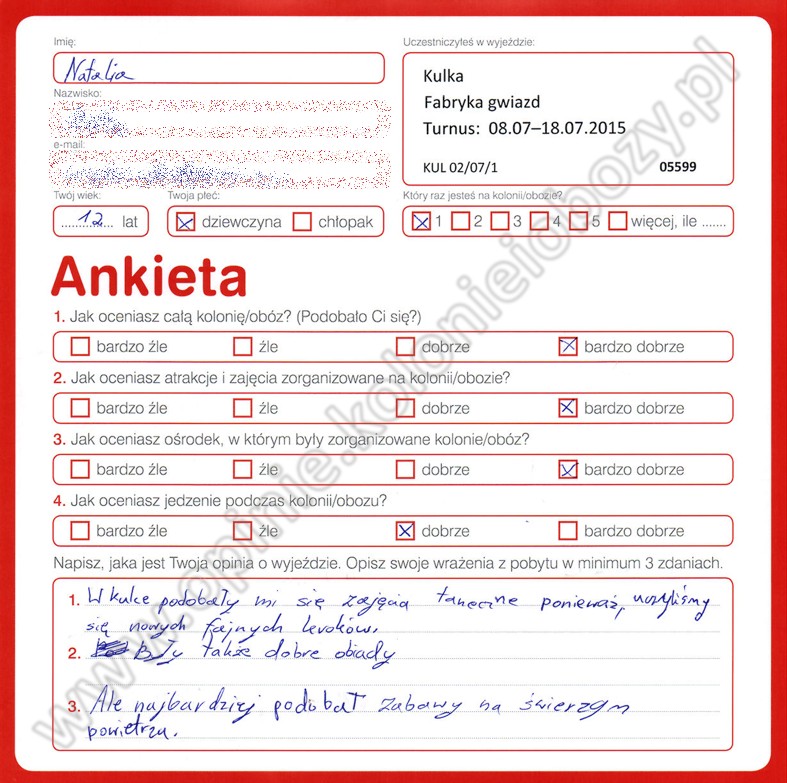 Imię:
Natalia
Nazwisko:
e-mail:
Twój wiek:
12 lat
Twoja płeć:
dziewczyna chłopak
Uczestniczyłeś w wyjeździe:
Kulka
Fabryka gwiazd
Turnus: 08.07–18.07.2015
KUL 02/07/1 05599
Który raz jesteś na kolonii/obozie?
1 2 3 4 5 więcej, ile .......
Ankieta
1. Jak oceniasz całą kolonię/obóz? (Podobało Ci się?)
bardzo źle źle dobrze bardzo dobrze
2. Jak oceniasz atrakcje i zajęcia zorganizowane na kolonii/obozie?
bardzo źle źle dobrze bardzo dobrze
3. Jak oceniasz ośrodek, w którym były zorganizowane kolonie/obóz?
bardzo źle źle dobrze bardzo dobrze
4. Jak oceniasz jedzenie podczas kolonii/obozu?
bardzo źle źle dobrze bardzo dobrze
Napisz, jaka jest Twoja opinia o wyjeździe. Opisz swoje wrażenia z pobytu w minimum 3 zdaniach.
1. W kulce podobały mi się zajęcia taneczne ponieważ, uczyliśmy
się nowych fajnych kroków.
2. Były także dobre obiady
3. Ale najbardziej podobał zabawy na świerzym
powietrzu.
www.opinie.kolonieiobozy.pl